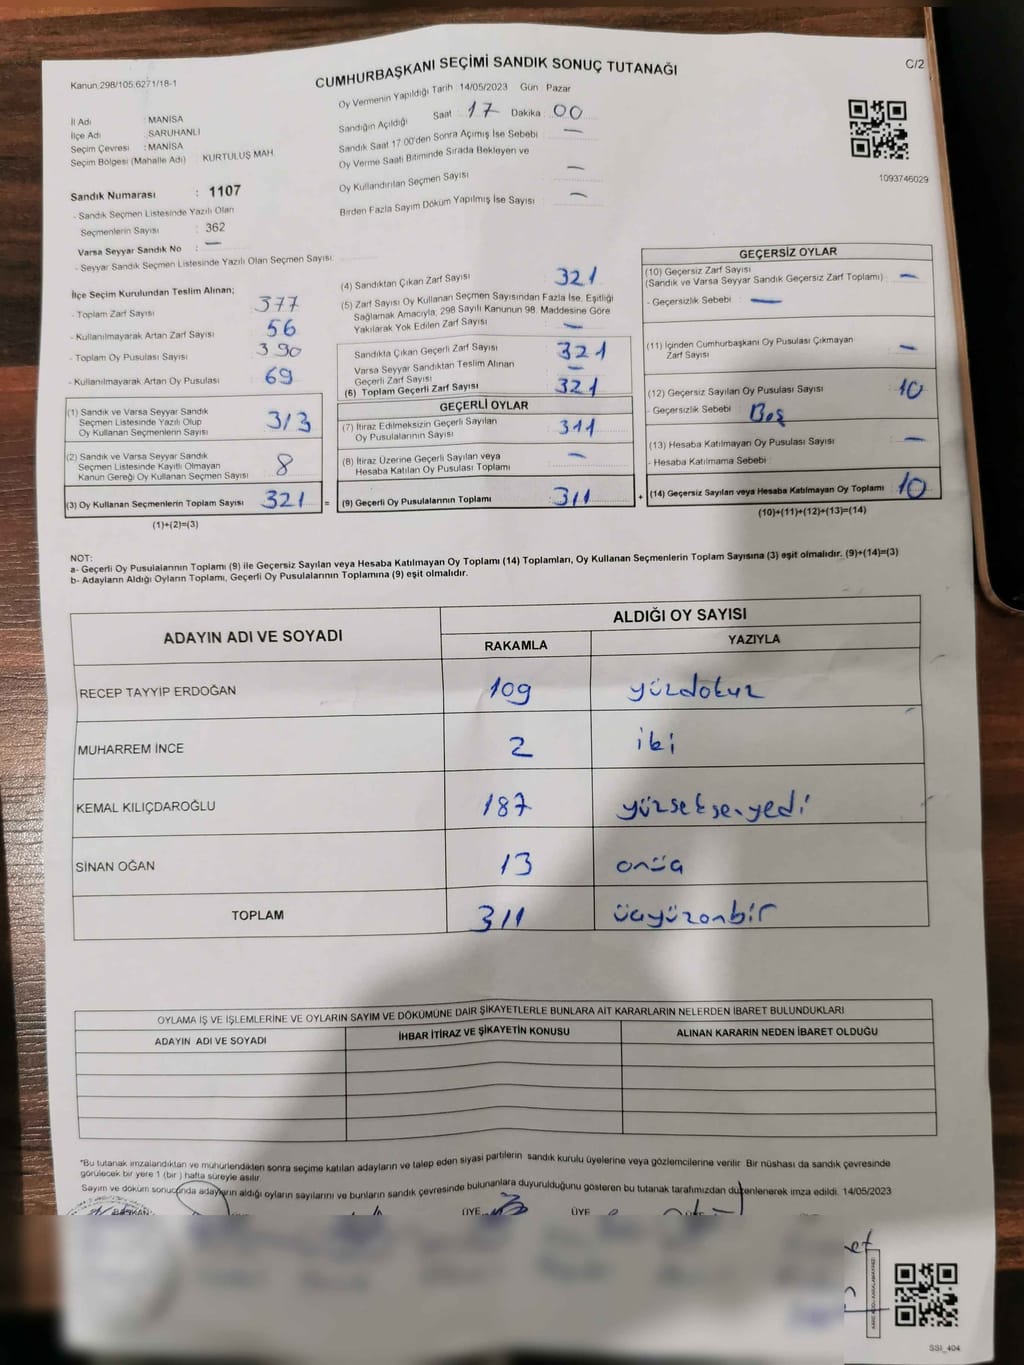 Kanun:298/105;6271/18-1
CUMHURBAŞKANI SEÇİMİ SANDIK SONUÇ TUTANAĞI
C/2
İl Adı : MANİSA
İlçe Adı : SARUHANLI
Seçim Çevresi : MANİSA
Seçim Bölgesi (Mahalle Adı) KURTULUŞ MAH.
Oy Vermenin Yapıldığı Tarih 14/05/2023 Gün : Pazar
Sandığın Açıldığı Saat : 17 Dakika : 00
Sandık Saat 17:00'den Sonra Açımış İse Sebebi : —
Oy Verme Saati Bitiminde Sırada Bekleyen ve
Oy Kullandırılan Seçmen Sayısı : —
Birden Fazla Sayım Döküm Yapılmış İse Sayısı : —
1093746029
Sandık Numarası : 1107
- Sandık Seçmen Listesinde Yazılı Olan
Seçmenlerin Sayısı : 362
Varsa Seyyar Sandık No : —
- Seyyar Sandık Seçmen Listesinde Yazılı Olan Seçmen Sayısı:
İlçe Seçim Kurulundan Teslim Alınan;
- Toplam Zarf Sayısı : 377
- Kullanılmayarak Artan Zarf Sayısı : 56
- Toplam Oy Pusulası Sayısı : 390
- Kullanılmayarak Artan Oy Pusulası : 69
(1) Sandık ve Varsa Seyyar Sandık
Seçmen Listesinde Yazılı Olup
Oy Kullanan Seçmenlerin Sayısı : 313
(2) Sandık ve Varsa Seyyar Sandık
Seçmen Listesinde Kayıtlı Olmayan
Kanun Gereği Oy Kullanan Seçmen Sayısı : 8
(3) Oy Kullanan Seçmenlerin Toplam Sayısı : 321 =
(1)+(2)=(3)
(4) Sandıktan Çıkan Zarf Sayısı : 321
(5) Zarf Sayısı Oy Kullanan Seçmen Sayısından Fazla İse, Eşitliği
Sağlamak Amacıyla, 298 Sayılı Kanunun 98. Maddesine Göre
Yakılarak Yok Edilen Zarf Sayısı : —
Sandıkta Çıkan Geçerli Zarf Sayısı : 321
Varsa Seyyar Sandıktan Teslim Alınan
Geçerli Zarf Sayısı : —
(6) Toplam Geçerli Zarf Sayısı : 321
GEÇERLİ OYLAR
(7) İtiraz Edilmeksizin Geçerli Sayılan
Oy Pusulalarının Sayısı : 311
(8) İtiraz Üzerine Geçerli Sayılan veya
Hesaba Katılan Oy Pusulası Toplamı : —
(9) Geçerli Oy Pusulalarının Toplamı : 311 +
GEÇERSİZ OYLAR
(10) Geçersiz Zarf Sayısı
(Sandık ve Varsa Seyyar Sandık Geçersiz Zarf Toplamı) : —
- Geçersizlik Sebebi : —
(11) İçinden Cumhurbaşkanı Oy Pusulası Çıkmayan
Zarf Sayısı : —
(12) Geçersiz Sayılan Oy Pusulası Sayısı : 10
- Geçersizlik Sebebi : Boş
(13) Hesaba Katılmayan Oy Pusulası Sayısı : —
- Hesaba Katılmama Sebebi :
(14) Geçersiz Sayılan veya Hesaba Katılmayan Oy Toplamı : 10
(10)+(11)+(12)+(13)=(14)
NOT:
a- Geçerli Oy Pusulalarının Toplamı (9) ile Geçersiz Sayılan veya Hesaba Katılmayan Oy Toplamı (14) Toplamları, Oy Kullanan Seçmenlerin Toplam Sayısına (3) eşit olmalıdır. (9)+(14)=(3)
b- Adayların Aldığı Oyların Toplamı, Geçerli Oy Pusulalarının Toplamına (9) eşit olmalıdır.
ADAYIN ADI VE SOYADI
ALDIĞI OY SAYISI
RAKAMLA YAZIYLA
RECEP TAYYİP ERDOĞAN 109 yüzdokuz
MUHARREM İNCE 2 iki
KEMAL KILIÇDAROĞLU 187 yüzseksenyedi
SİNAN OĞAN 13 onüç
TOPLAM 311 üçyüzonbir
OYLAMA İŞ VE İŞLEMLERİNE VE OYLARIN SAYIM VE DÖKÜMÜNE DAİR ŞİKAYETLERLE BUNLARA AİT KARARLARIN NELERDEN İBARET BULUNDUKLARI
ADAYIN ADI VE SOYADI İHBAR İTİRAZ VE ŞİKAYETİN KONUSU ALINAN KARARIN NEDEN İBARET OLDUĞU
*Bu tutanak imzalandıktan ve mühürlendikten sonra seçime katılan adayların ve talep eden siyasi partilerin sandık kurulu üyelerine veya gözlemcilerine verilir. Bir nüshası da sandık çevresinde
görülecek bir yere 1 (bir ) hafta süreyle asılır.
Sayım ve döküm sonucunda adayların aldığı oyların sayılarını ve bunların sandık çevresinde bulunanlara duyurulduğunu gösteren bu tutanak tarafımızdan düzenlenerek imza edildi. 14/05/2023
BAŞKAN ÜYE ÜYE
SSI_404